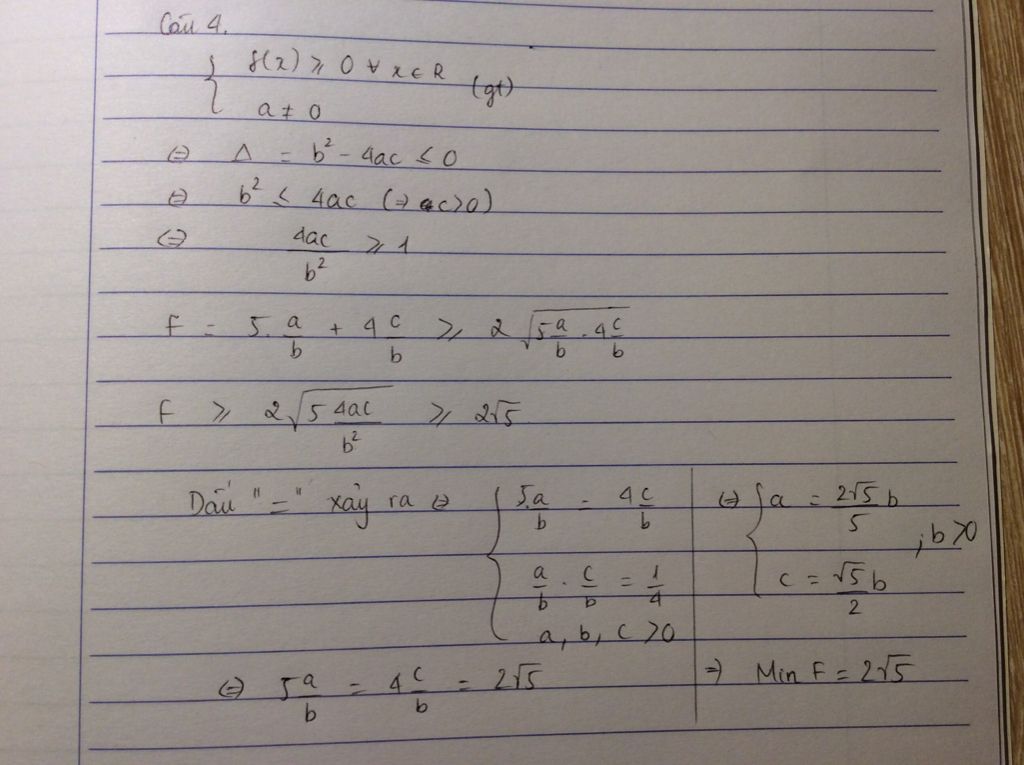 Câu 4.
{ f(x) ≥ 0 ∀ x ∈ R
a ≠ 0 (gt)
⇔ Δ = b² - 4ac ≤ 0
⇔ b² ≤ 4ac (⇒ ac>0)
⇔ 4ac/b² ≥ 1
F = 5.a/b + 4 c/b ≥ 2 √(5a/b . 4c/b)
F ≥ 2√(5 4ac/b²) ≥ 2√5
Dấu "=" xảy ra ⇔ { 5.a/b = 4c/b
a/b . c/b = 1/4
a, b, c >0
⇔ 5a/b = 4c/b = 2√5
⇔ { a = 2√5/5 b
c = √5/2 b ; b>0
⇒ Min F = 2√5